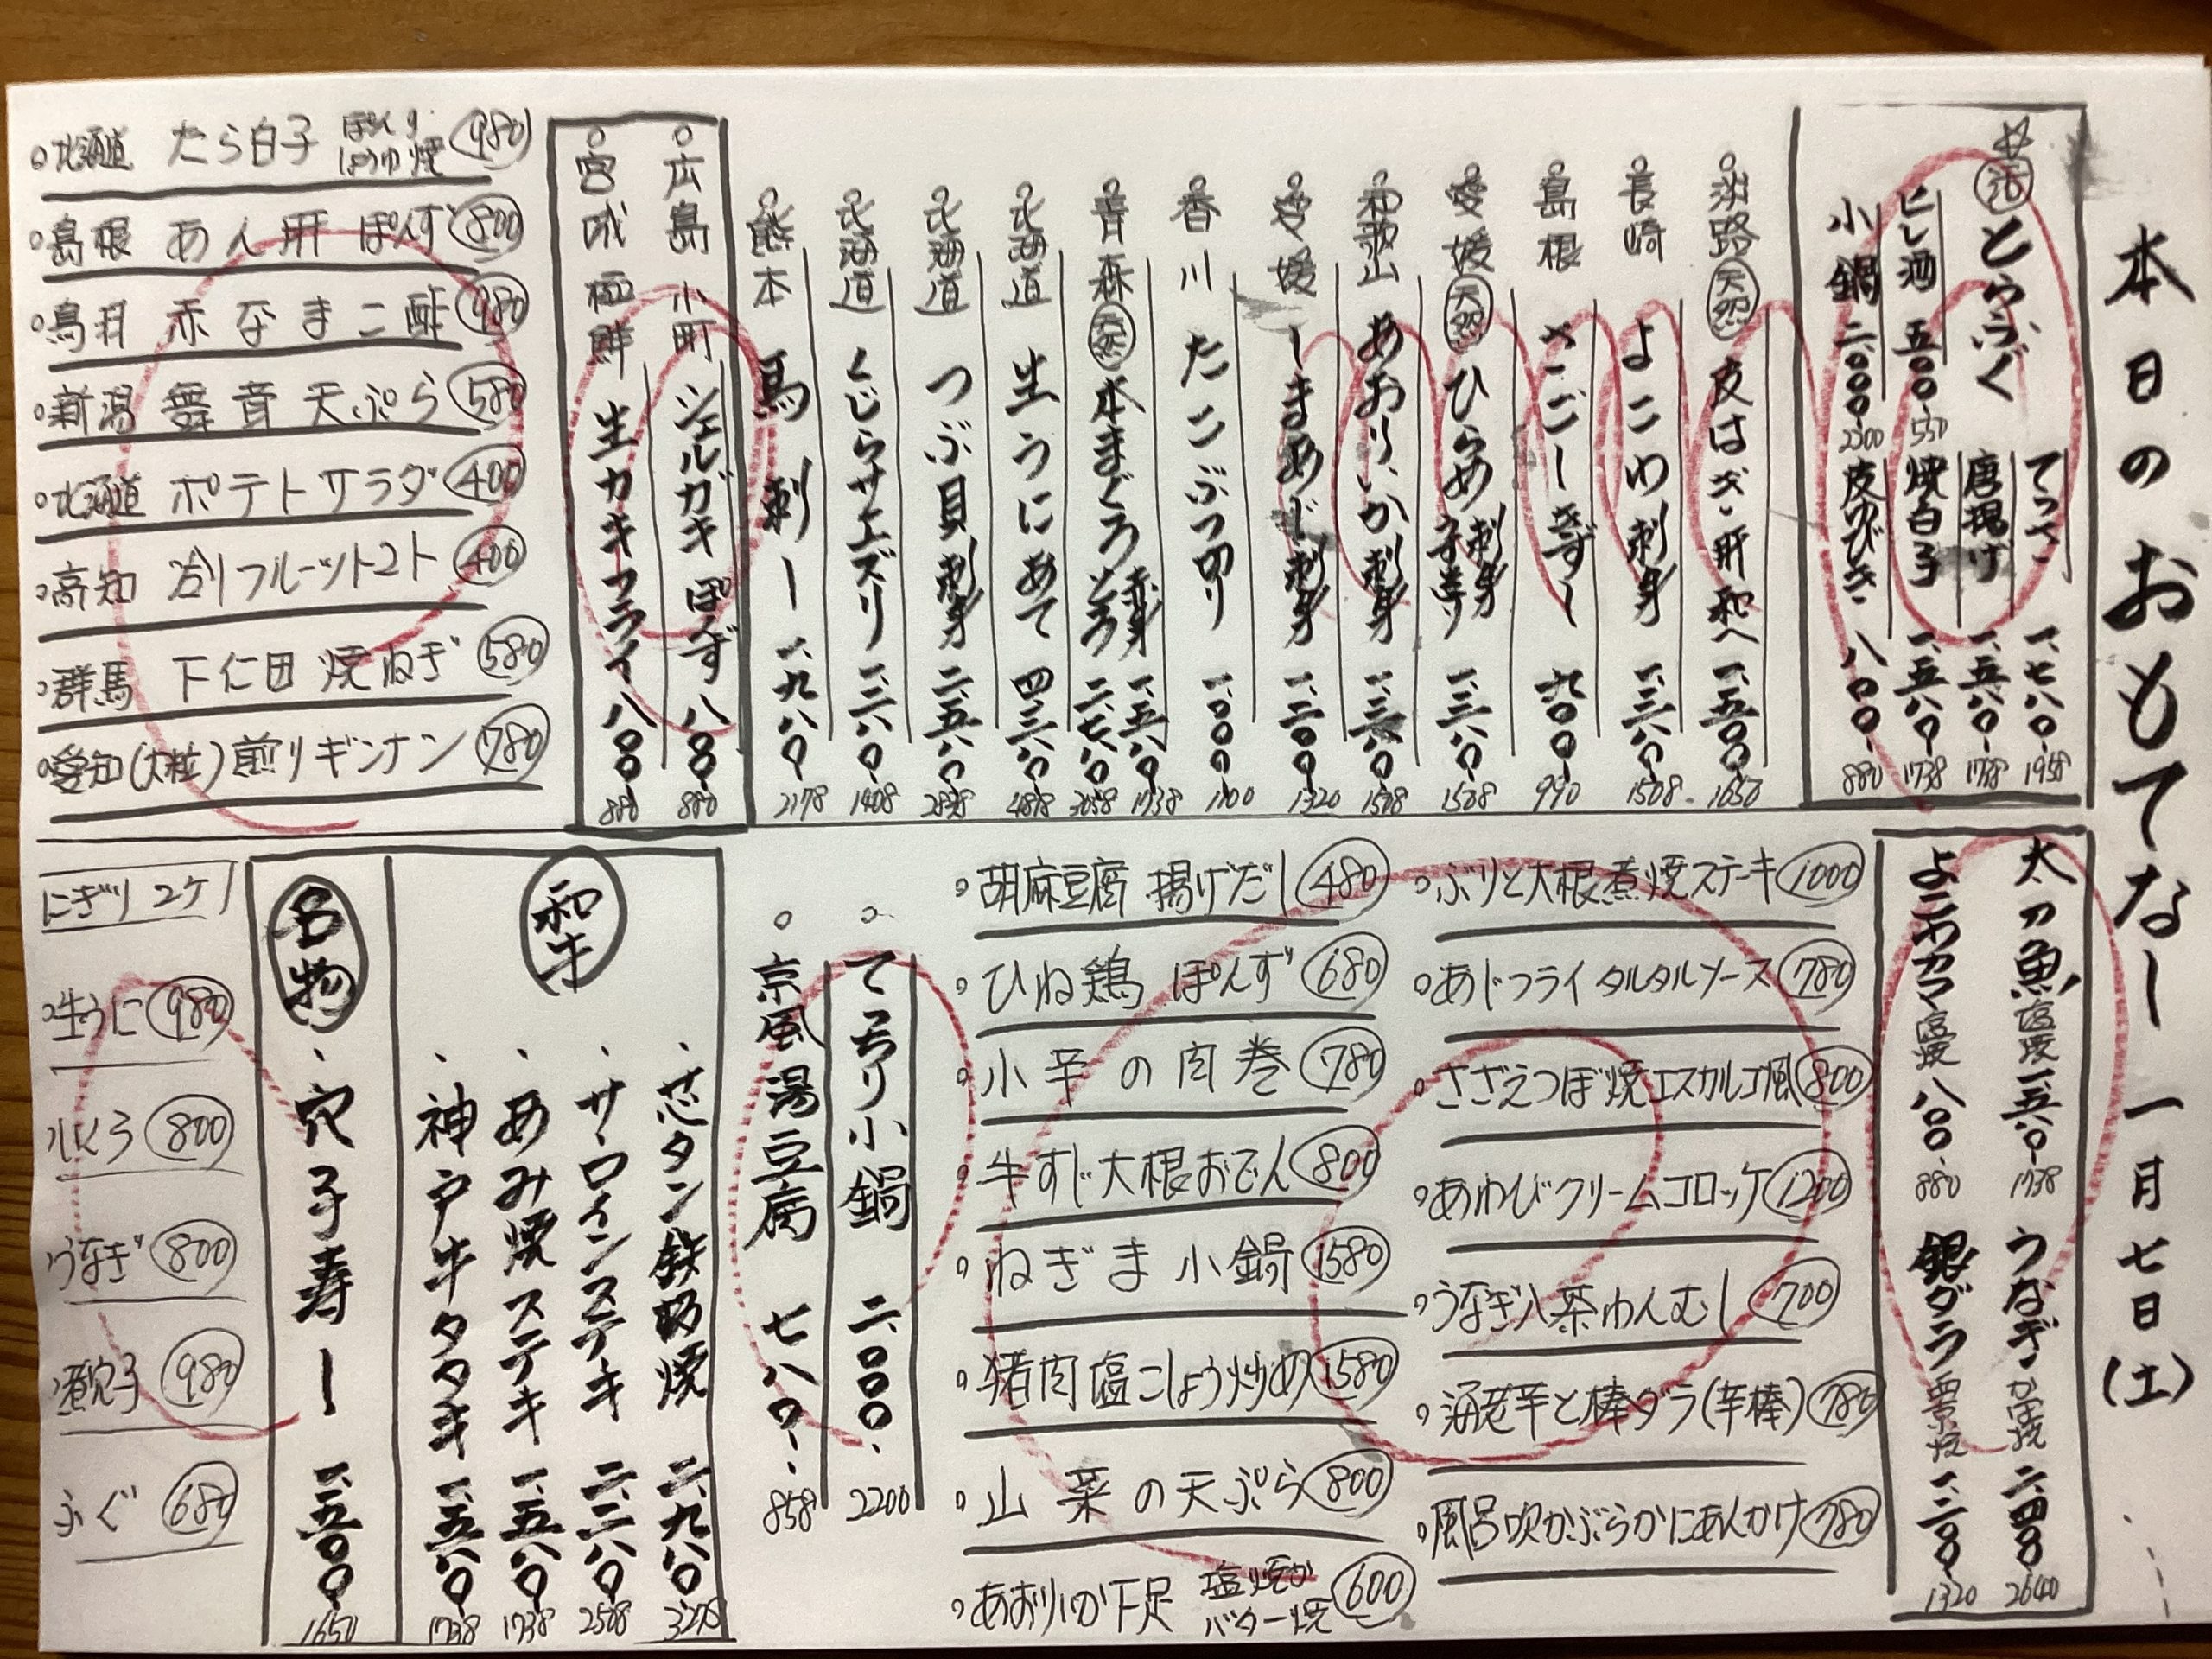 本日のおもてなしー 一月七日(土)
☆活とらふぐ
てっさ 一、七八〇 1958
唐揚げ 一、五八〇 1738
焼白子 一、五八〇 1738
皮ゆびき 八〇〇 880
ヒレ酒 五〇〇 550
小鍋 二、〇〇〇 2200
淡路 天然 皮はぎ 肝和へ 一、五〇〇 1650
長崎 よこわ刺身 一、三八〇 1508
島根 さごしーきずしー 九〇〇 990
愛媛 天然 ひらめ 刺身 一、三八〇 1508
和歌山 あおりいか刺身 一、三八〇 1508
愛媛 しまあじ刺身 一、二〇〇 1320
香川 たこぶつ切り 一、〇〇〇 1100
青森 天然 本まぐろ 赤身 一、五八〇 1738
とろ 二、七八〇 3058
北海道 生うにあて 四、三八〇 4818
北海道 つぶ貝刺身 二、五八〇 2838
北海道 くじらサエズリ 一、二八〇 1408
熊本 馬刺しー 一、九八〇 2178
広島 小町 シェルガキぽんず 八〇〇 880
宮城 極鮮 生カキフライ 八〇〇 880
北海道 たら白子 ぽんず しょうゆ焼 980
島根 あん肝 ぽんず 800
鳥羽 赤なまこ酢 980
新潟 舞茸天ぷら 580
北海道 ポテトサラダ 400
高知 フルーツトマト 400
群馬 下仁田 焼ねぎ 580
愛知(大粒)煎りギンナン 780
太刀魚塩焼 一、五八〇 1738
うなぎ かば焼 二、四〇〇 2640
よこわカマ塩焼 八〇〇 880
銀ダラ 西京焼 一、二〇〇 1320
ぶりと大根煮焼ステーキ 1000
あじフライ タルタルソース 780
さざえつぼ焼エスカルゴ風 800
あわびクリームコロッケ 1200
うなぎ入茶わんむし 700
海老芋と棒ダラ(芋棒) 780
風呂吹かぶらかにあんかけ 780
胡麻豆腐 揚げだし 480
ひね鶏 ぽんず 680
小芋の肉巻 780
牛すじ大根おでん 800
ねぎま小鍋 1580
猪肉塩こしょう炒め 1580
山菜の天ぷら 800
あおりいか下足 塩焼か バター焼 600
てっちり小鍋 二、〇〇〇 2200
京風湯豆腐 七八〇 858
和牛
芯タン鉄砲焼 二、九八〇 3278
サーロインステーキ 二、二八〇 2508
あみ焼ステーキ 一、五八〇 1738
神戸牛タタキ 一、五八〇 1738
名物
穴子寿しー 一、五〇〇 1650
にぎり 2ケ
生うに 980
いくら 800
うなぎ 800
煮穴子 980
ふぐ 680